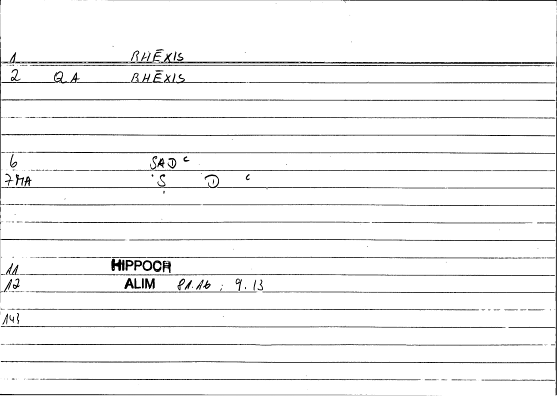 1 RHĒXIS
2 QA RHĒXIS
6 ṢADʿ
7 MA Ṣ D ʿ
11 HIPPOCR
12 ALIM 81.16 ; 9.13
143